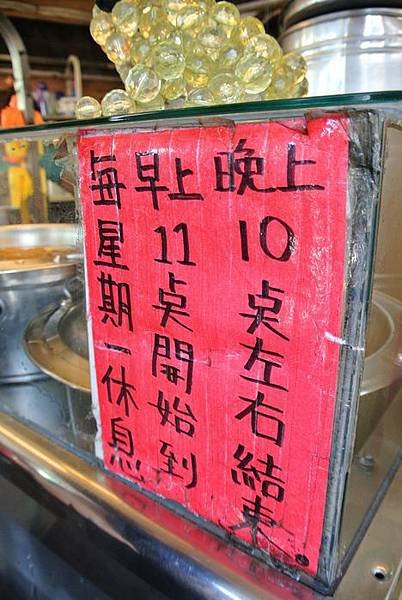 每星期一休息
早上11奌開始到
晚上10奌左右結束。